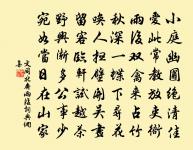 小庭幽圃絕清佳
愛此常教放吏衙
雨後雙禽來占竹
秋深一蝶下尋花
喚人掃壁開吳畫
留客臨軒試越茶
野興漸多公事少
宛如當日在山家
文同北齋雨後